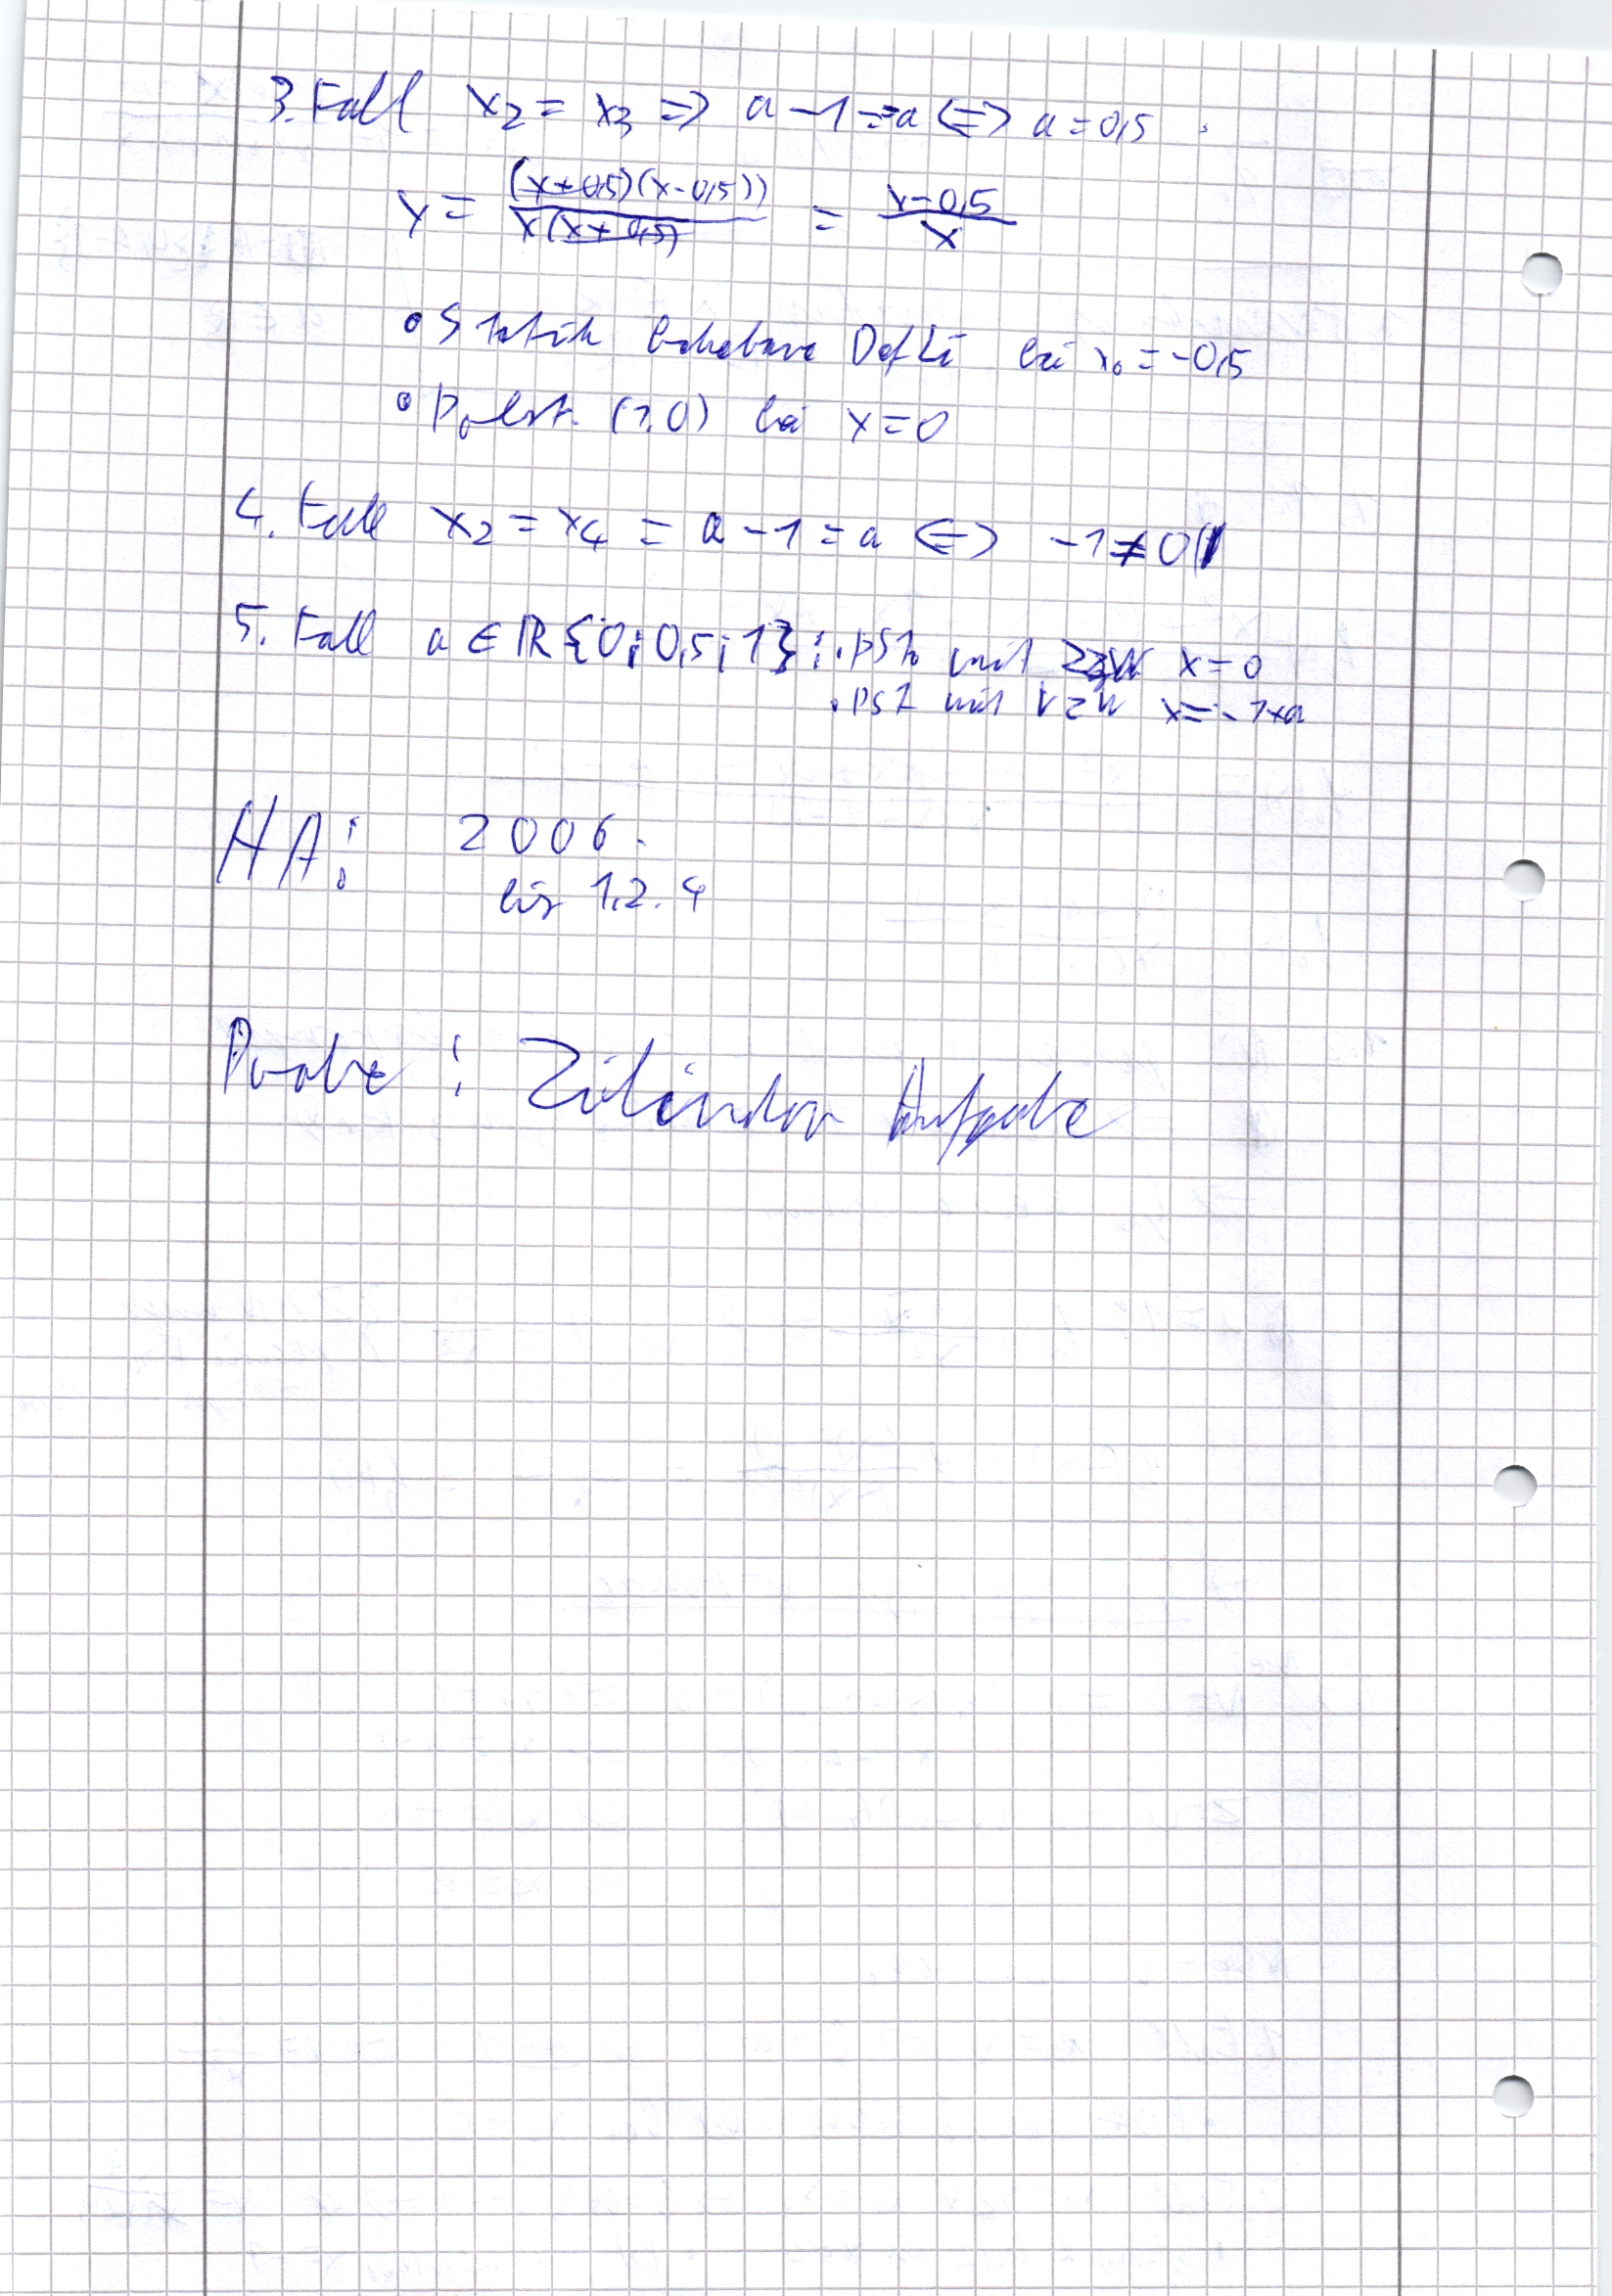 3. Fall x₂ = x₃ => a - 1 = -a <=> a = 0,5
y = (x+0,5)(x-0,5)) / x(x+0,5) = x-0,5 / x
• Stetik behebbare Def Lü bei x₀ = -0,5
• Polst. (1.0) bei x = 0
4. Fall x₂ = x₄ = a - 1 = a <=> -1 ≠ 0
5. Fall a ∈ ℝ {0; 0,5; 1} : • PS1 mit VZW x = 0
• PS1 mit VZW x = -1+a
HA: 2006.
bis 1.2.4
Probe : Zilinder Aufgabe